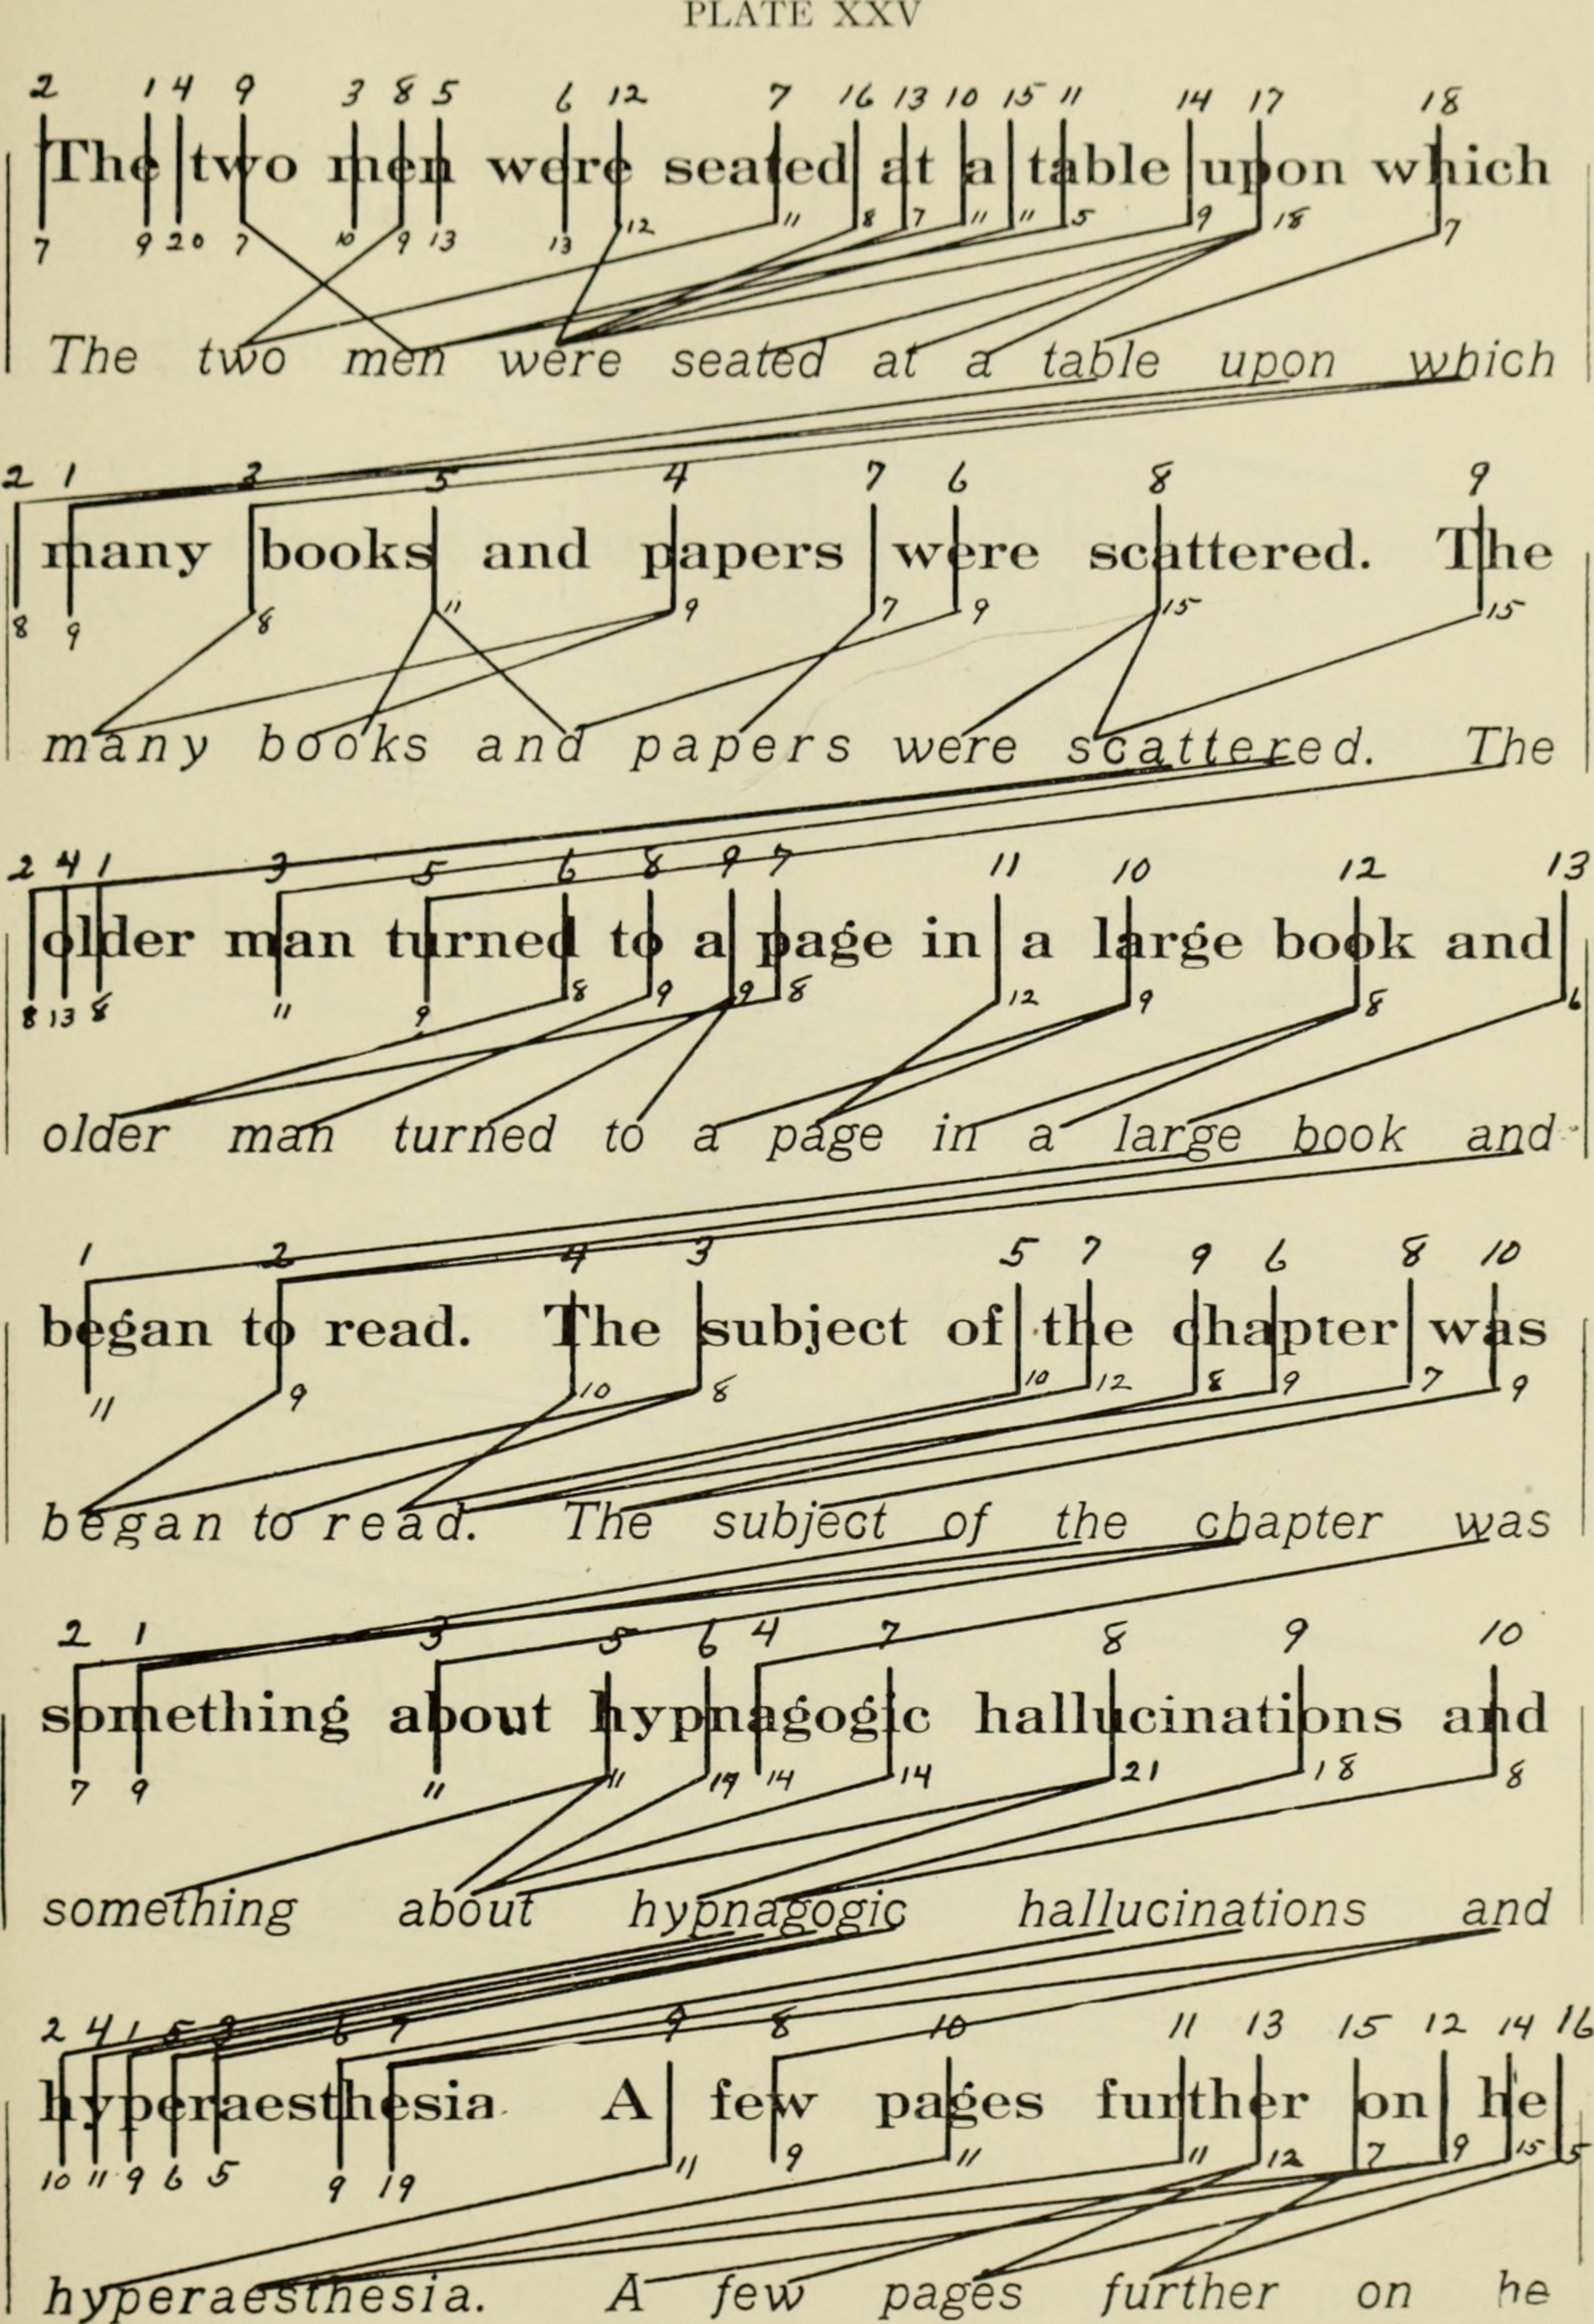 PLATE XXV
2 1 4 9 3 8 5 6 12 7 16 13 10 15 11 14 17 18
The two men were seated at a table upon which
7 9 20 7 10 9 13 13 12 11 8 7 11 11 5 9 18 7
The two men were seated at a table upon which
2 1 3 5 4 7 6 8 9
many books and papers were scattered. The
8 9 8 11 9 7 9 15 15
many books and papers were scattered. The
2 4 1 3 5 6 8 9 7 11 10 12 13
older man turned to a page in a large book and
8 13 8 11 9 8 9 9 8 12 9 8 6
older man turned to a page in a large book and
1 2 4 3 5 7 9 6 8 10
began to read. The subject of the chapter was
11 9 10 8 10 12 8 9 7 9
began to read. The subject of the chapter was
2 1 3 5 6 4 7 8 9 10
something about hypnagogic hallucinations and
7 9 11 11 19 14 14 21 18 8
something about hypnagogic hallucinations and
2 4 1 5 3 6 7 9 8 10 11 13 15 12 14 16
hyperaesthesia. A few pages further on he
10 11 9 6 5 9 19 11 9 11 11 12 7 9 15 5
hyperaesthesia. A few pages further on he